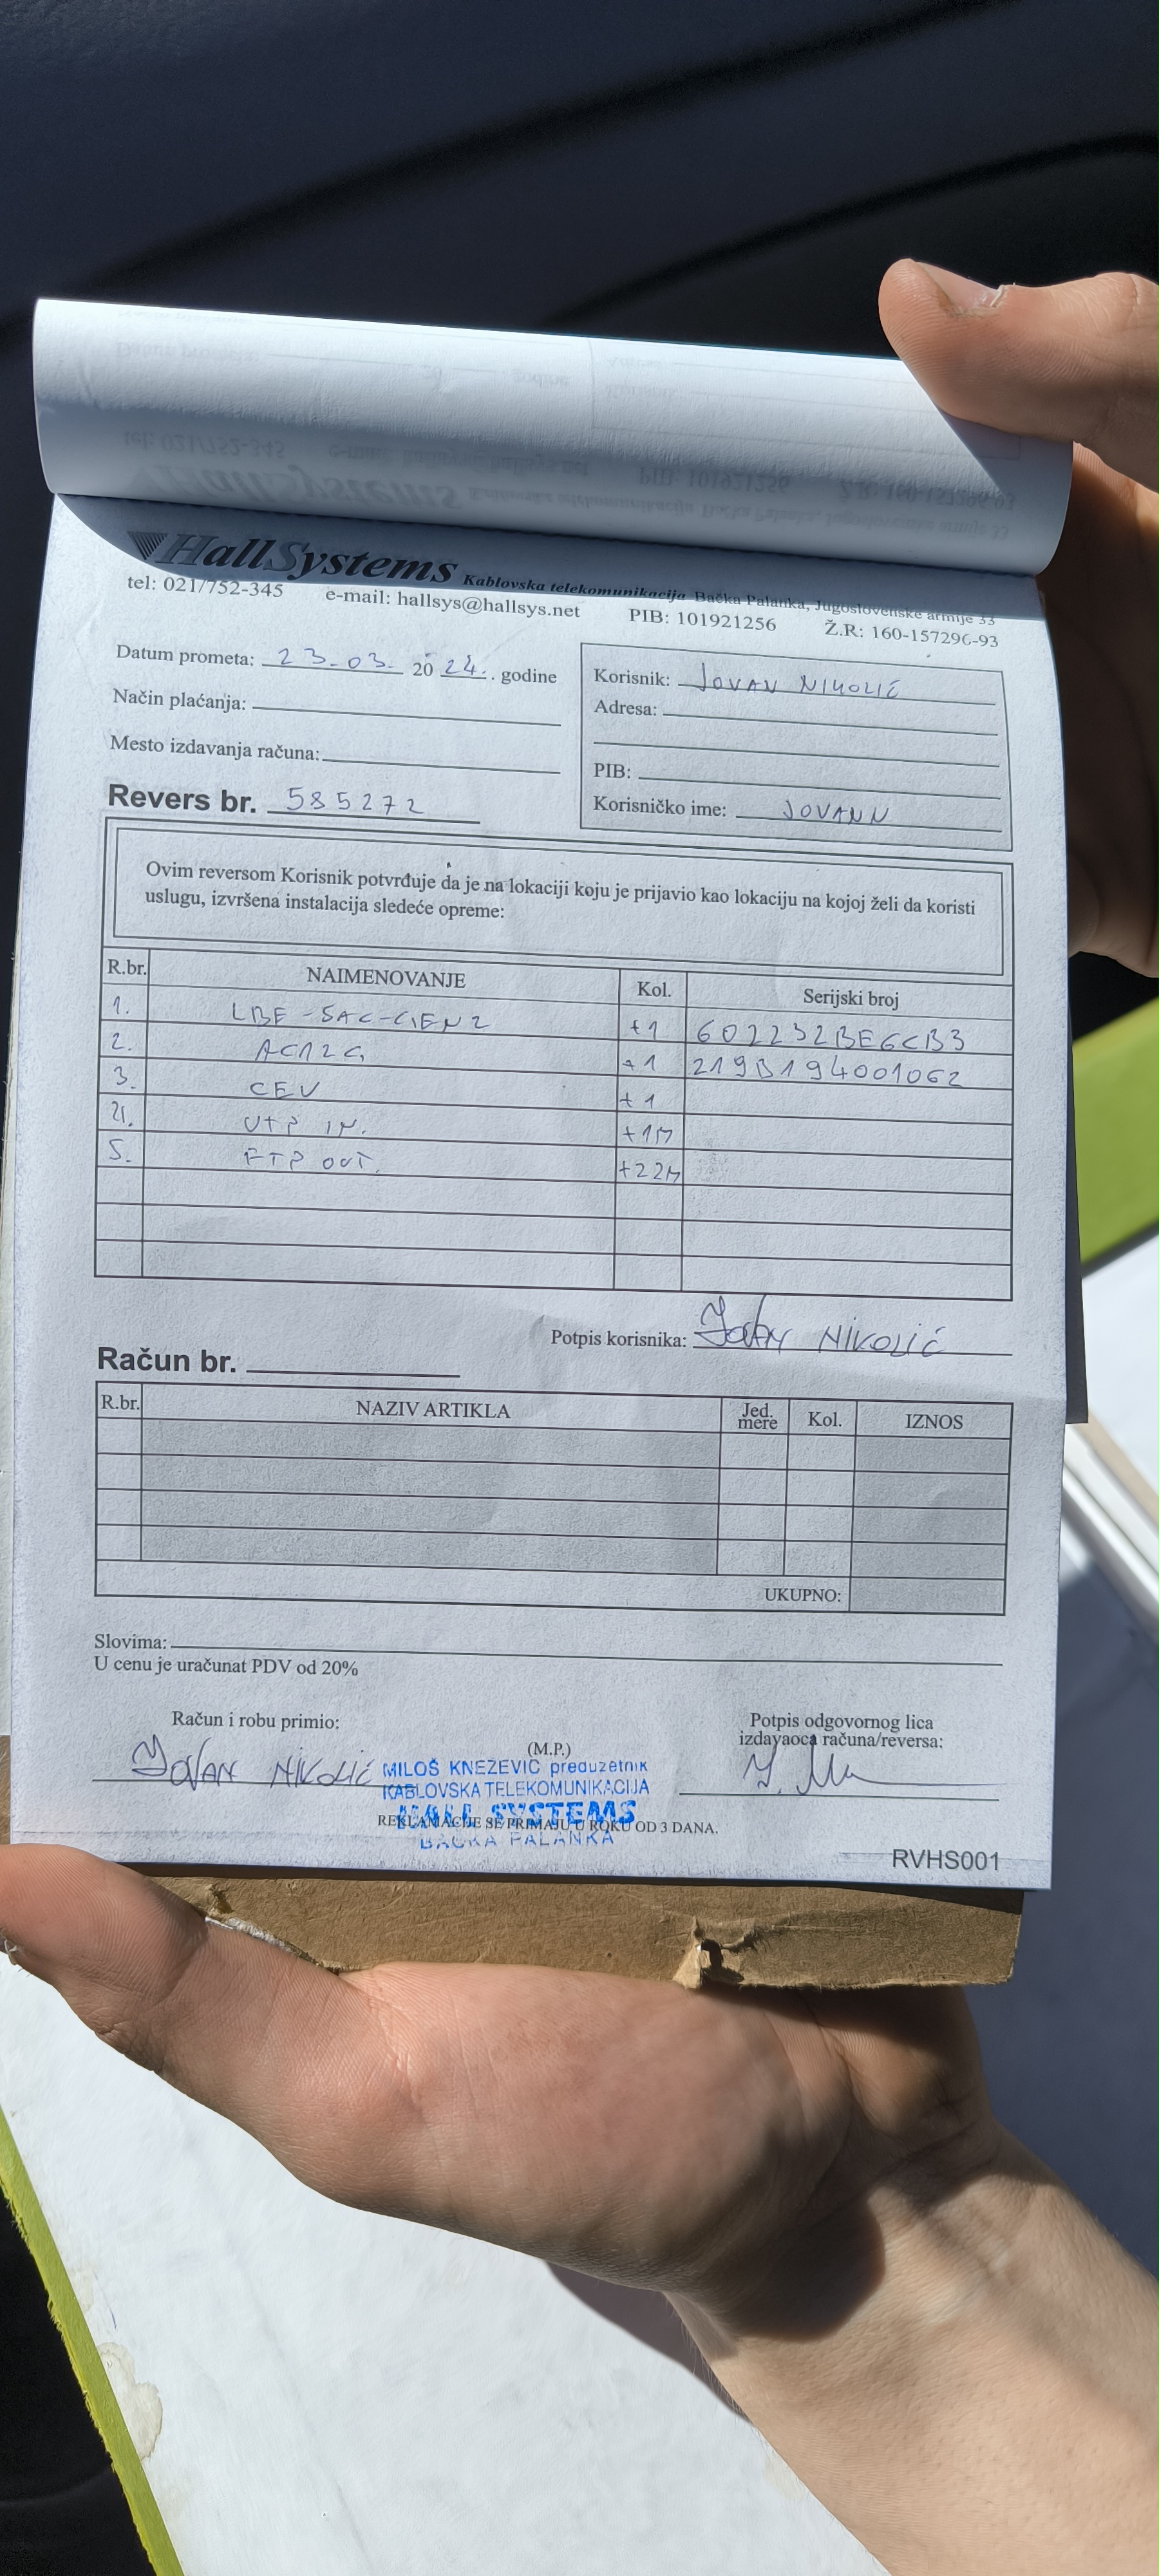 HallSystems Kablovska telekomunikacija Bačka Palanka, Jugoslovenske armije 33
tel: 021/752-345 e-mail: hallsys@hallsys.net PIB: 101921256 Ž.R: 160-157296-93
Datum prometa: 23.03. 20 24. . godine
Način plaćanja:
Mesto izdavanja računa:
Revers br. 585272
Korisnik: JOVAN NIKOLIĆ
Adresa:
PIB:
Korisničko ime: JOVANN
Ovim reversom Korisnik potvrđuje da je na lokaciji koju je prijavio kao lokaciju na kojoj želi da koristi
uslugu, izvršena instalacija sledeće opreme:
R.br. NAIMENOVANJE Kol. Serijski broj
1. LBE-5AC-GEN2 +1 602232BE6CB3
2. AC12G +1 219B194001062
3. CEV +1
4. UTP IN. +1M
5. FTP OUT. +22M
Potpis korisnika: Jovan NIKOLIĆ
Račun br.
R.br. NAZIV ARTIKLA Jed. mere Kol. IZNOS
UKUPNO:
Slovima:
U cenu je uračunat PDV od 20%
Račun i robu primio:
JOVAN NIKOLIĆ
(M.P.)
MILOŠ KNEŽEVIĆ preduzetnik
KABLOVSKA TELEKOMUNIKACIJA
HALL SYSTEMS
REKLAMACIJE SE PRIMAJU U ROKU OD 3 DANA.
BAČKA PALANKA
Potpis odgovornog lica
izdavaoca računa/reversa:
RVHS001